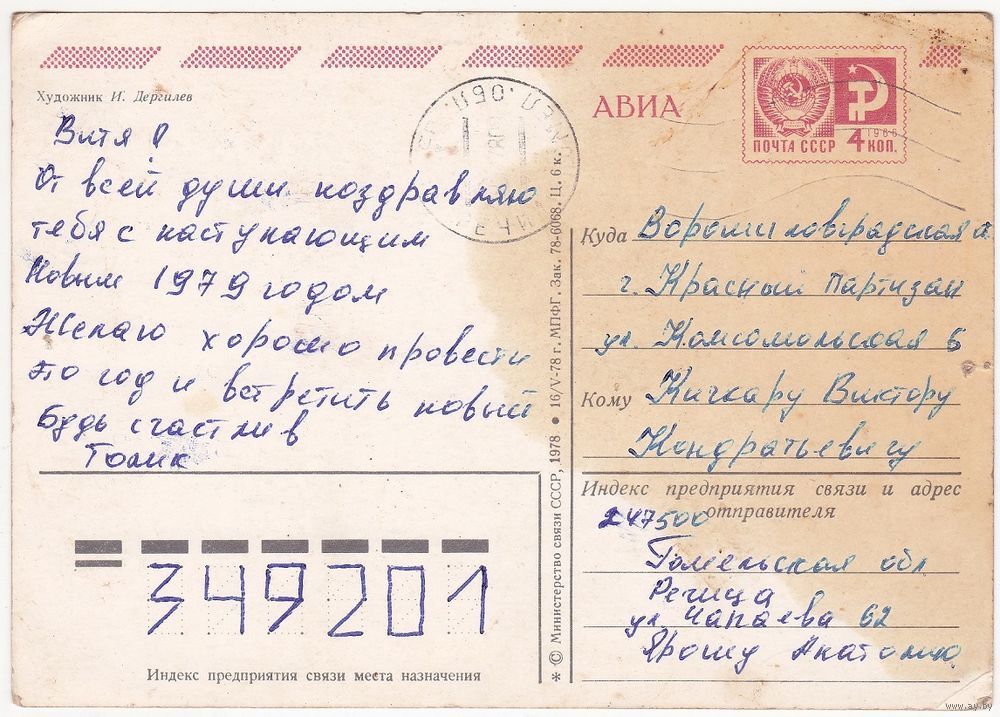 Художник И. Дергилев
Витя!
От всей души поздравляю
тебя с наступающим
Новым 1979 годом
Желаю хорошо провести
год и встретить новый
Будь счастлив
Толик
349201
Индекс предприятия связи места назначения
* © Министерство связи СССР, 1978 ● 16/V-78 г. МПФГ. Зак. 78-6068. Ц. 6 к.
АВИА
ПОЧТА СССР
1966
4 КОП.
Куда Ворошиловградская
г. Красный Партизан
ул. Комсомольская
Кому Кичкару Виктору
Кондратьевичу
Индекс предприятия связи и адрес
отправителя
247500
Гомельская обл
Речица
ул. Чапаева 62
Ярошу Анатолию
www.ay.by